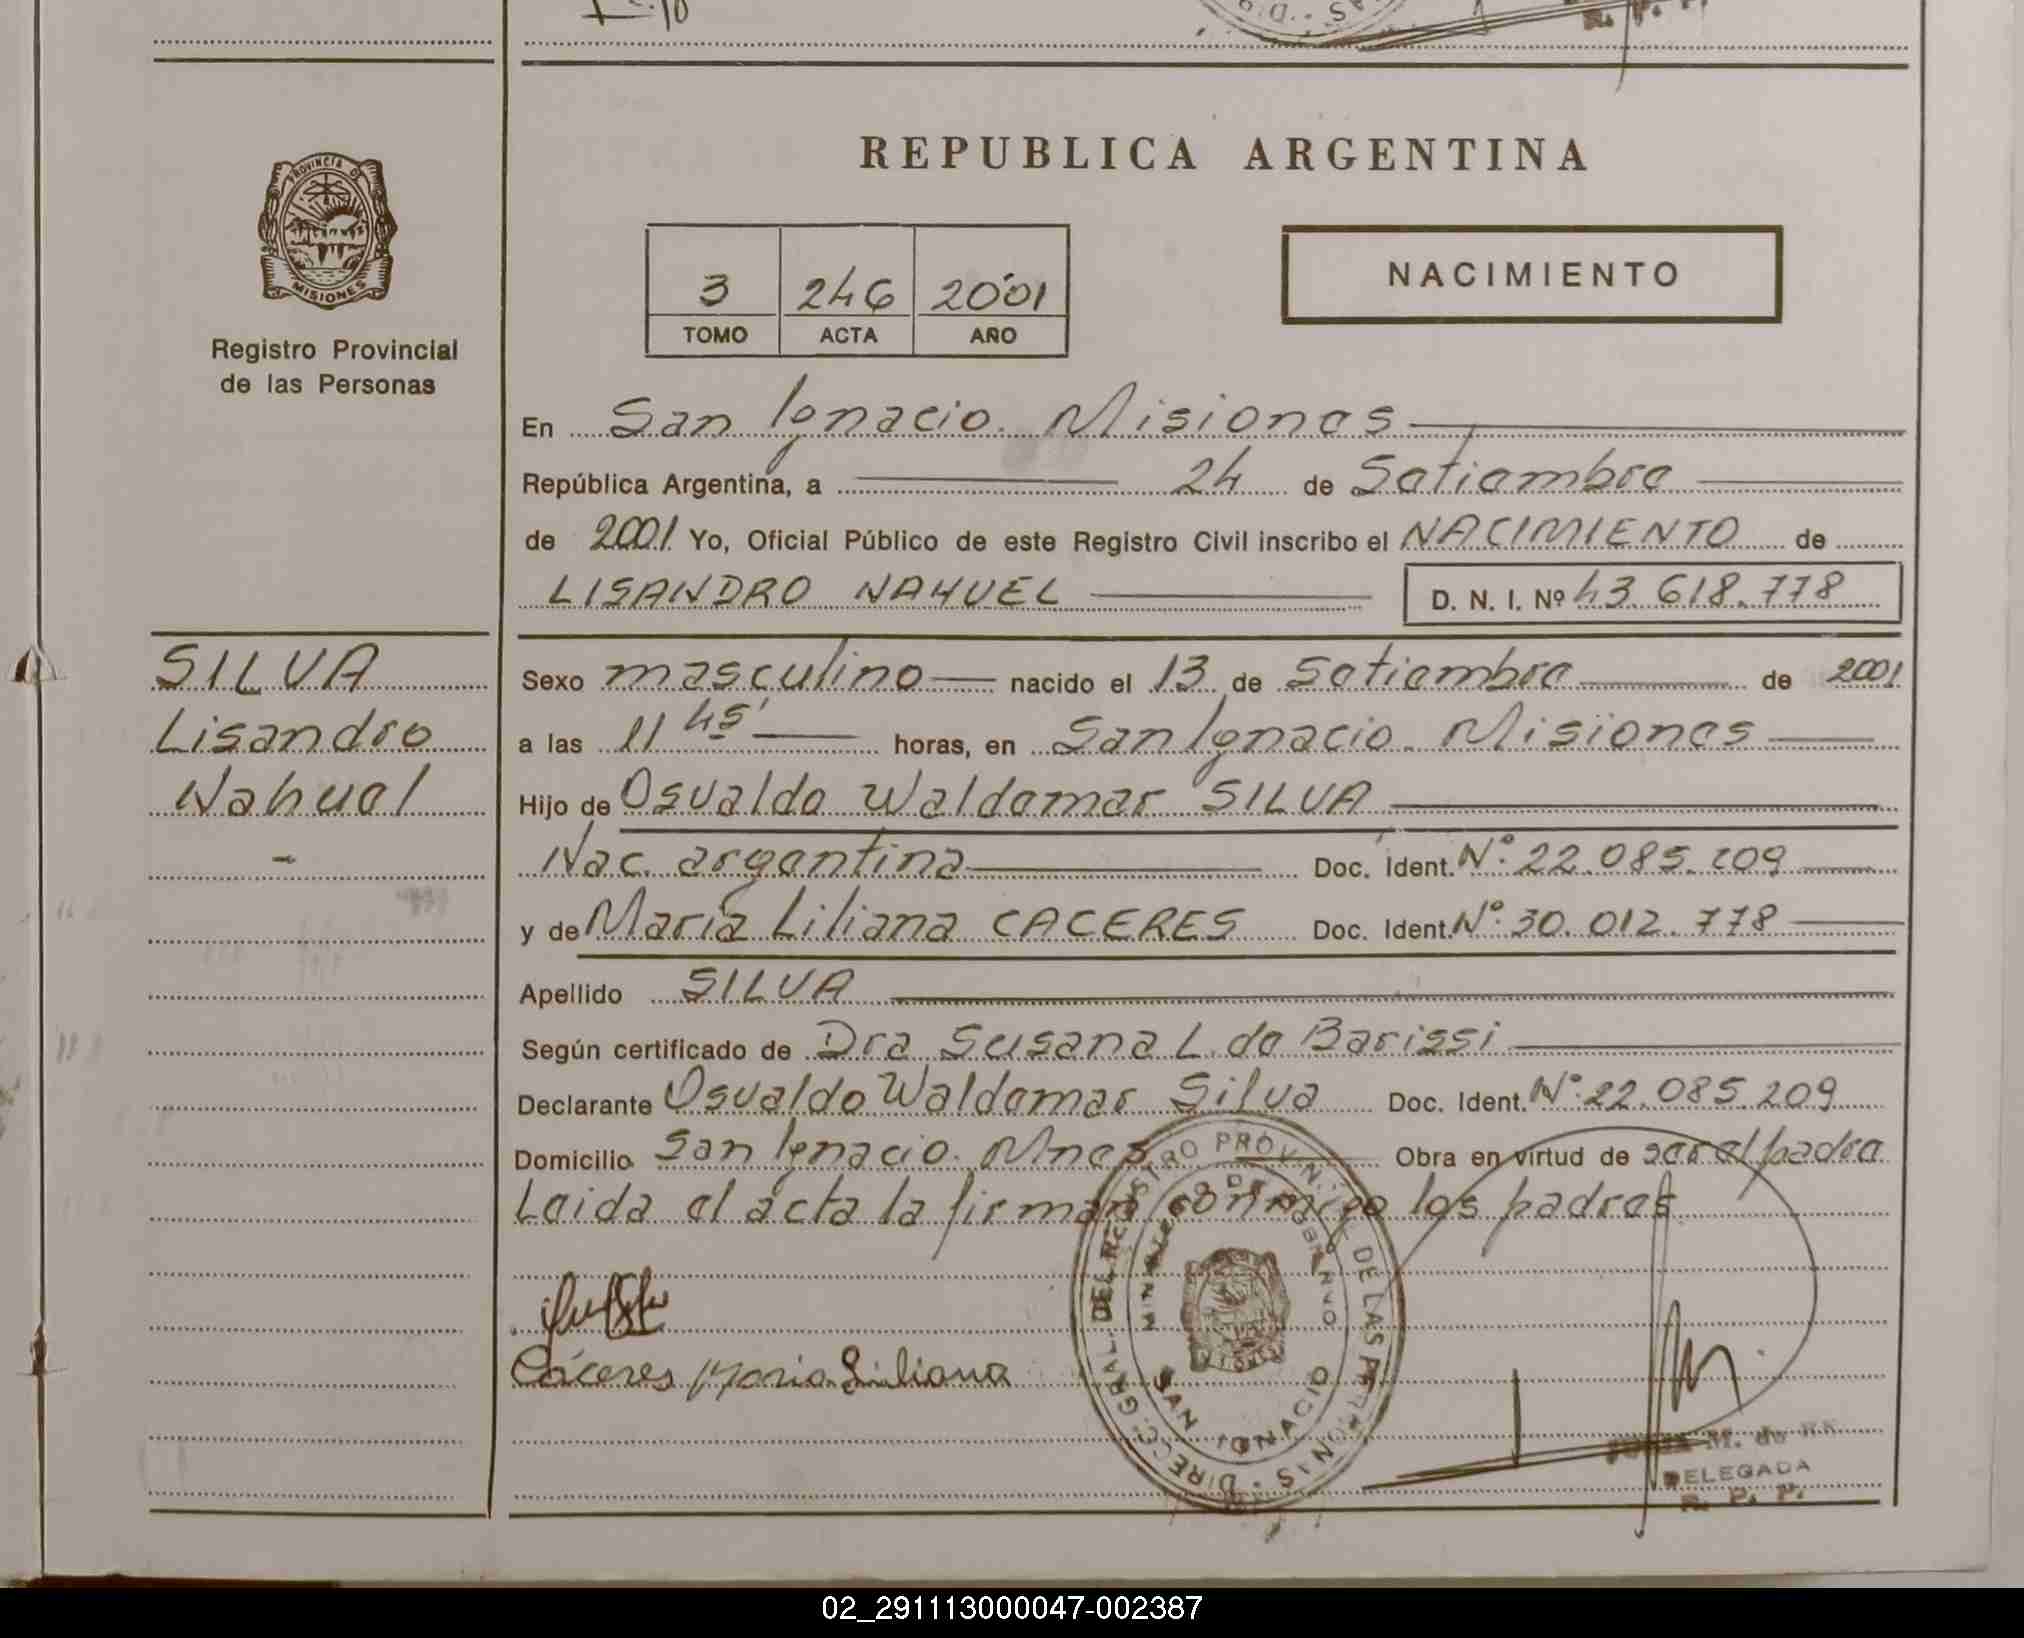 REPUBLICA ARGENTINA
PROVINCIA DE
MISIONES
Registro Provincial
de las Personas
3 246 2001
TOMO ACTA AÑO
NACIMIENTO
En San Ignacio. Misiones
República Argentina, a 24 de Setiembre
de 2001 Yo, Oficial Público de este Registro Civil inscribo el NACIMIENTO de
LISANDRO NAHUEL D. N. I. Nº 43.618.778
SILVA
Lisandro
Nahuel
-
Sexo masculino nacido el 13 de Setiembre de 2001
a las 11 45' horas, en San Ignacio. Misiones
Hijo de Osvaldo Waldemar SILVA
Nac. argentina Doc. Ident. Nº: 22.085.209
y de María Liliana CACERES Doc. Ident. Nº: 30.012.778
Apellido SILVA
Según certificado de Dra Susana L. de Barissi
Declarante Osvaldo Waldemar Silva Doc. Ident. Nº: 22.085.209
Domicilio San Ignacio. Mnes Obra en virtud de ser el padre
Leida el acta la firman conmigo los padres
Cáceres Maria Liliana
DIRECC. GRAL. DEL REGISTRO PROVIN. DE LAS PERSONAS
MINISTERIO DE GOBIERNO
MISIONES
SAN IGNACIO
M. de
DELEGADA
R. P. P.
02_291113000047-002387